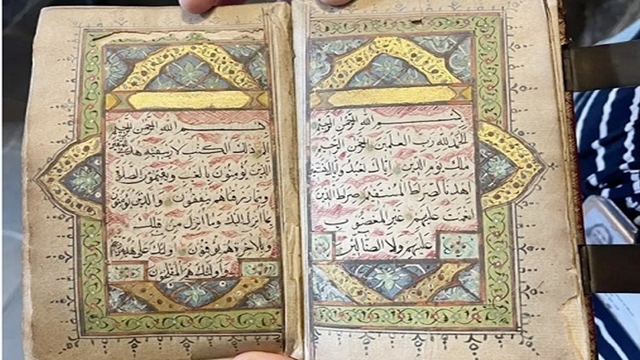 بسم الله الرحمن الرحيم
الحمد لله رب العلمين الرحمن الرحيم
ملك يوم الدين اياك نعبد واياك نستعين
اهدنا الصراط المستقيم صراط الذين
انعمت عليهم غير المغضوب
عليهم ولا الضالين
بسم الله الرحمن الرحيم
الم ذلك الكتب لا ريب فيه هدى
الذين يؤمنون بالغيب ويقيمون الصلوة
ومما رزقناهم ينفقون والذين يؤمنون
بما انزل اليك وما انزل من قبلك
وبالاخرة هم يوقنون اولئك على هدى من
واولئك هم المفلحون